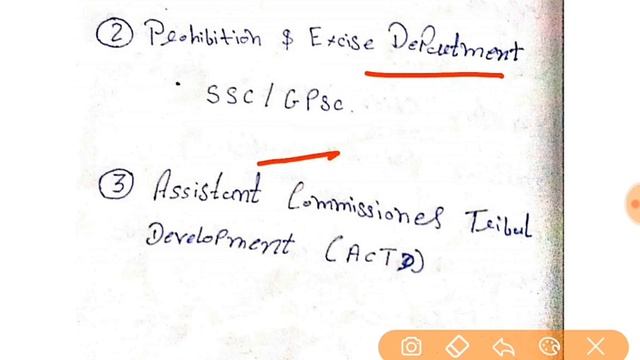 ② Prohibition $ Excise Department
SSC / GPSC.
③ Assistant Commissioner Tribal
Development (ACTD)